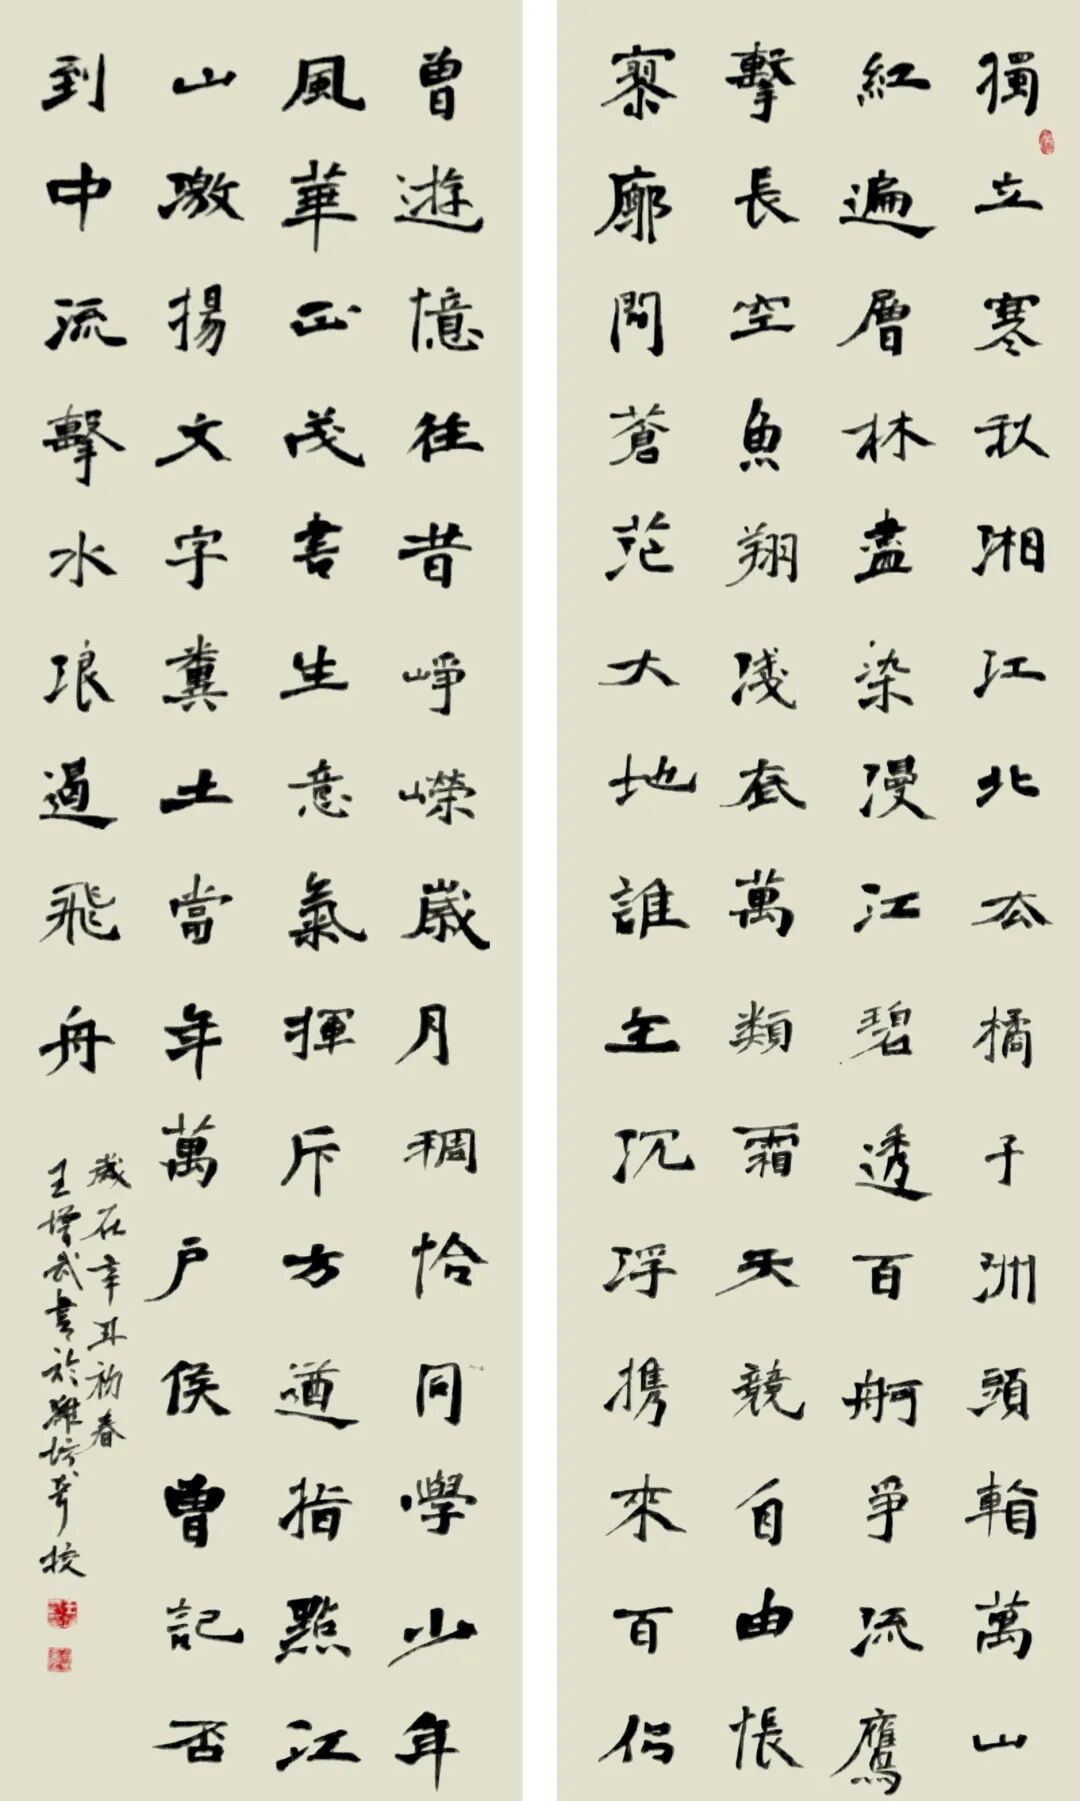 獨立寒秋湘江北去橘子洲頭看萬山
紅遍層林盡染漫江碧透百舸爭流鷹
擊長空魚翔淺底萬類霜天競自由悵
寥廓問蒼茫大地誰主沉浮携來百侶
曾遊憶往昔崢嶸歲月稠恰同學少年
風華正茂書生意氣揮斥方遒指點江
山激揚文字糞土當年萬户侯曾記否
到中流擊水浪遏飛舟
歲在辛丑初春
王增武書於濰坊校